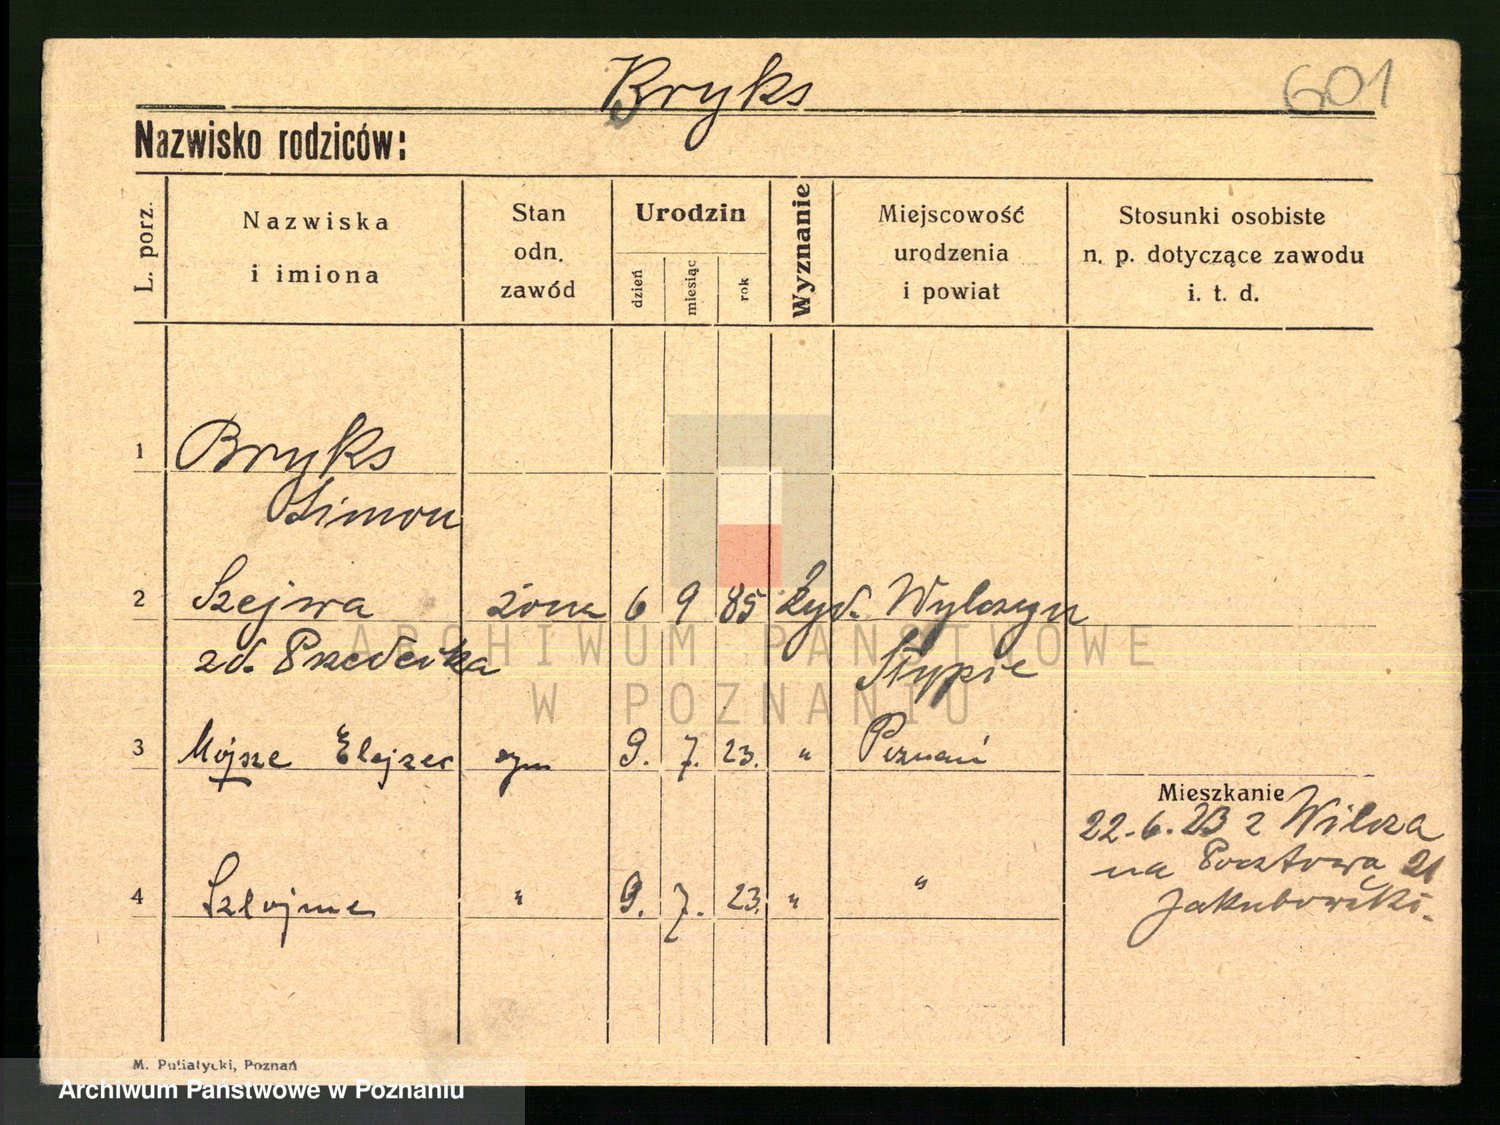 Bryks
601
Nazwisko rodziców:
L. porz.
Nazwiska
i imiona
Stan
odn.
zawód
Urodzin
dzień
miesiąc
rok
Wyznanie
Miejscowość
urodzenia
i powiat
Stosunki osobiste
n. p. dotyczące zawodu
i. t. d.
1 Bryks
Simon
2 Szejwa żona 6 9 85 żyd.
zd.
Słupie
3 Mojsze syn 9. 7. 23. " Poznań
Mieszkanie
22.6.23 z Wilcza
na Pocztowa 21
4 " 9. 7. 23. " "
Jakubowski.
M. Putiatycki, Poznań
ARCHIWUM PAŃSTWOWE
W POZNANIU
Archiwum Państwowe w Poznaniu